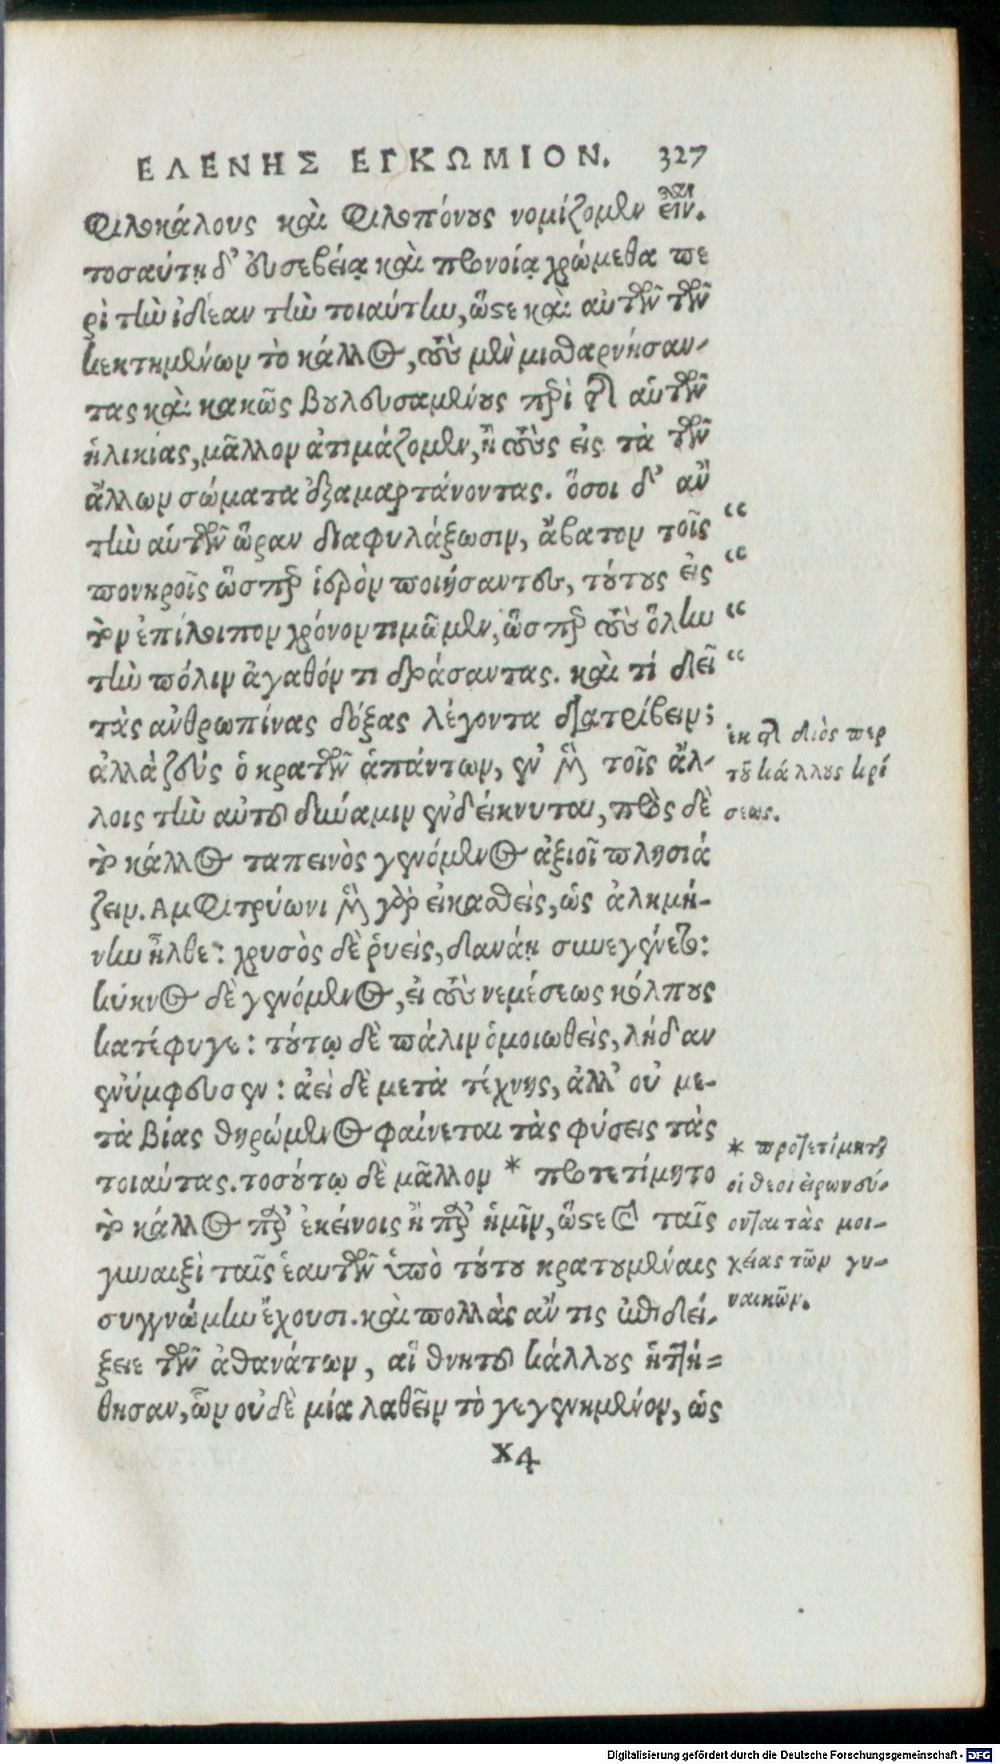 ΕΛΕΝΗΣ ΕΓΚΩΜΙΟΝ. 327
φιλοκάλους καὶ φιλοπόνους νομίζομεν εἶναι.
τοσαύτῃ δ' εὐσεβείᾳ καὶ προνοίᾳ χρώμεθα πε
ρὶ τὴν ἰδέαν τὴν τοιαύτην, ὥστε καὶ αὐτῶν τῶν
κεκτημένων τὸ κάλλος, τοὺς μὲν μισθαρνήσαν-
τας καὶ κακῶς βουλευσαμένους περὶ τῆς αὑτῶν
ἡλικίας, μᾶλλον ἀτιμάζομεν, ἢ τοὺς εἰς τὰ τῶν
ἄλλων σώματα ἐξαμαρτάνοντας. ὅσοι δ' ἂν
τὴν αὑτῶν ὥραν διαφυλάξωσιν, ἄβατον τοῖς “
πονηροῖς ὥσπερ ἱερὸν ποιήσαντες, τούτους εἰς “
τὸν ἐπίλοιπον χρόνον τιμῶμεν, ὥσπερ τοὺς ὅλην “
τὴν πόλιν ἀγαθόν τι δράσαντας. καὶ τί δεῖ “
τὰς ἀνθρωπίνας δόξας λέγοντα διατρίβειν;
ἀλλὰ ζεὺς ὁ κρατῶν ἁπάντων, ἐν μὲν τοῖς ἄλ-
λοις τὴν αὐτοῦ δύναμιν ἐνδείκνυται, πρὸς δὲ
τὸ κάλλος ταπεινὸς γενόμενος ἀξιοῖ πλησιά
ζειν. Αμφιτρύωνι μὲν γὰρ εἰκασθεὶς, ὡς ἀλκμή-
νην ἦλθε: χρυσὸς δὲ ῥυεὶς, δανάῃ συνεγένετο:
κύκνος δὲ γενόμενος, εἰς τοὺς νεμέσεως κόλπους
κατέφυγε: τούτῳ δὲ πάλιν ὁμοιωθεὶς, λήδαν
ἐνύμφευσεν: ἀεὶ δὲ μετὰ τέχνης, ἀλλ' οὐ με-
τὰ βίας θηρώμενος φαίνεται τὰς φύσεις τὰς
τοιαύτας. τοσούτῳ δὲ μᾶλλον * προτετίμητο
τὸ κάλλος παρ' ἐκείνοις ἢ παρ' ἡμῖν, ὥστε καὶ ταῖς
γυναιξὶ ταῖς ἑαυτῶν ὑπὸ τούτου κρατουμέναις
συγγνώμην ἔχουσι. καὶ πολλὰς ἄν τις ἐπιδεί-
ξειε τῶν ἀθανάτων, αἳ θνητοῦ κάλλους ἡττή=
θησαν, ὧν οὐδὲ μία λαθεῖν τὸ γεγενημένον, ὡς
X4
ἐκ τῆς διὸς περ
τοῦ κάλλους κρί
σεως.
* προζετίμητο
οἱ θεοὶ
τὰς μοι-
χείας τῶν γυ-
ναικῶν.
Digitalisierung gefördert durch die Deutsche Forschungsgemeinschaft - DFG